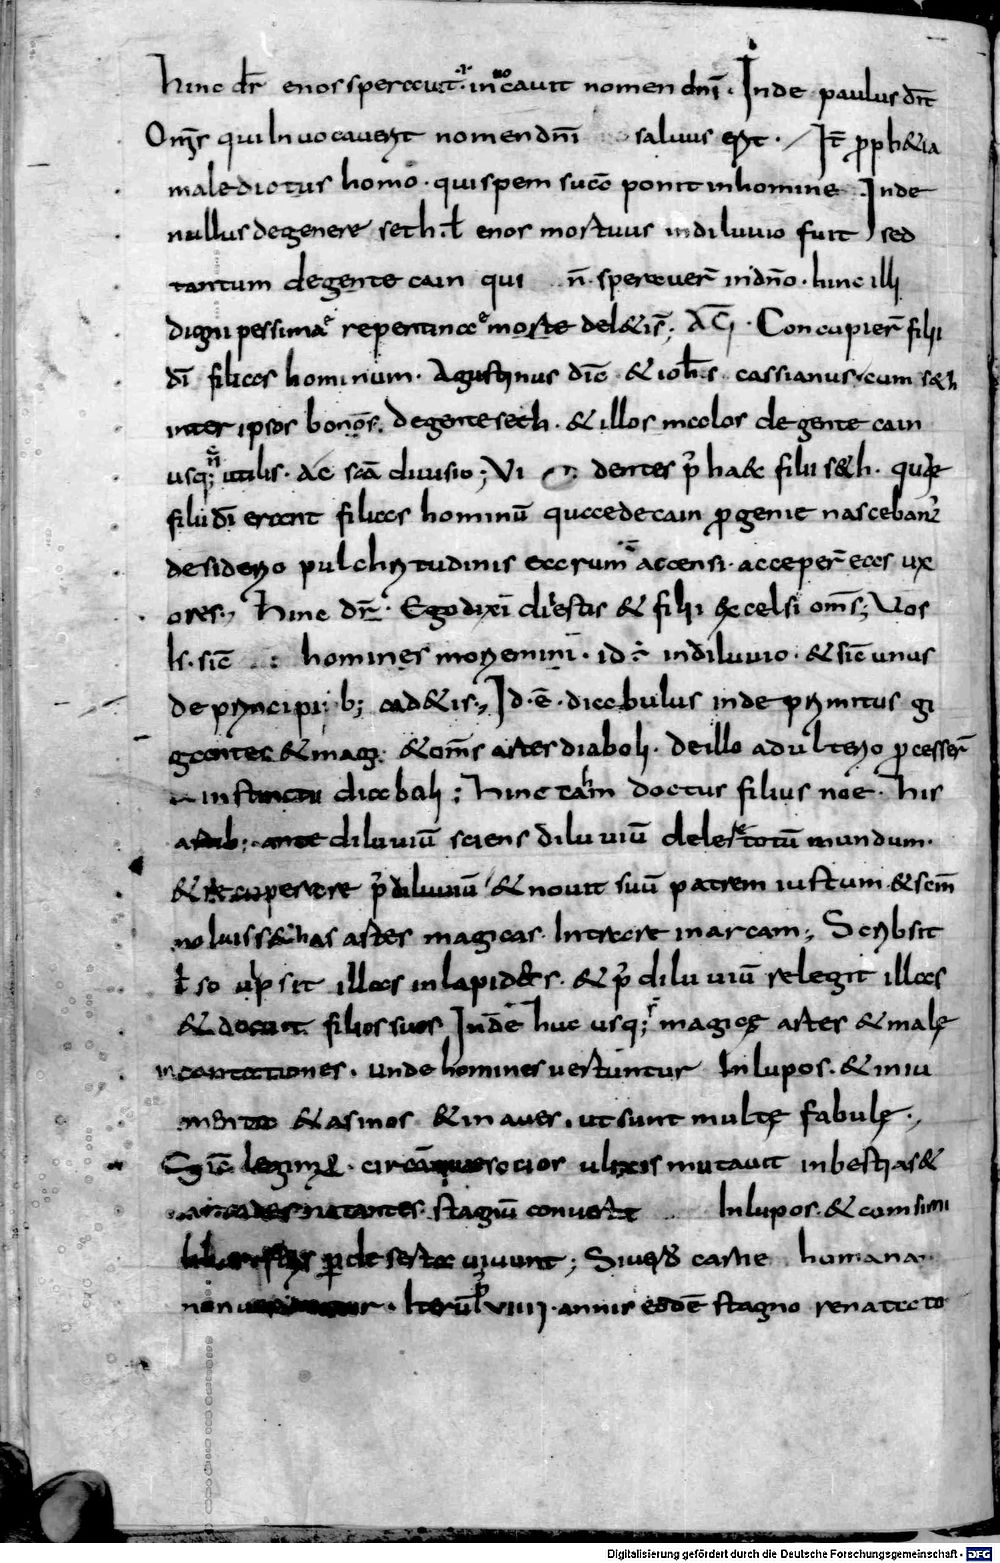 hinc dr̄ enos speravit ·i· invocavit nomen dnī · Inde paulus dīt
Om̄s qui Invocaverit nomen dnī salvus erit · It̄ p̄ph&ia
maledictus homo · qui spem suā ponit in homine Inde
nullus de genere seth · ł enos mortuus in diluvio fuit sed
tantum de gente cain qui n̄ · speraver̄ in dn̄o · hinc illi
digni pessima repentina morte del&is̄; AĒI · Concupier̄ filii
dī filias hominum · Agustinus dīc & ioh̄s cassianus cum s&h
inter ipsos bonōs · de gente seth · & illos in colos de gente cain
usq; utilis · ac scā divisio; Vi dentes p̄ haec filii s&h · qui
filii dī erant filias hominū quae de cain p̄genie nascebant᷑
desiderio pulchritudinis earum accensi · acceper̄ eas ux
ores., hinc dr̄ · Ego dixī dii estis & filii excelsi om̄s; Vos
sic̄ homines moriemini · id ÷ in diluvio · & sic̄ unus
de principi b; cad&is., Id · ē · diabulus inde primitus gi
gantes & magi · & om̄s artes diaboli · de illo adulterio p̄cesser̄
instinctu diaboli; hinc tam doctus filius noe · his
artib; · ante diluviū sciens diluviū delere totū mundum ·
& recuperare p᷑ diluviū & novit suū patrem iustum & scm̄
noluiss& has artes magicas Intrare in arcam; Scribsit
illas in lapides · & p᷑ diluviū relegit illas
& docuit filios suos Inde huc usq; magicę artes & malę
incantationes · unde homines vertuntur In lupos · & in iu
menta & asinos & in aves · ut sunt multę fabulę.,
Sic̄ legim᷑ · circā socios ulixis mutavit in bestias &
natantes · stagnū In lupos · & cum simi
p̄ deserta vivunt; Si vero carne humana
non · Iterū VIIII · annis eodē stagno renatato
Digitalisierung gefördert durch die Deutsche Forschungsgemeinschaft · DFG